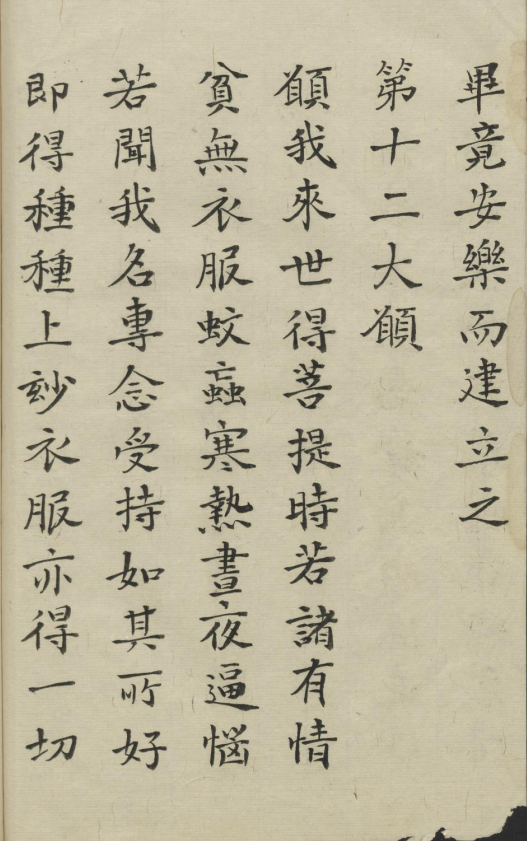 畢竟安樂而建立之
第十二大願
願我來世得菩提時若諸有情
貧無衣服蚊蝱寒熱晝夜逼惱
若聞我名專念受持如其所好
即得種種上玅衣服亦得一切